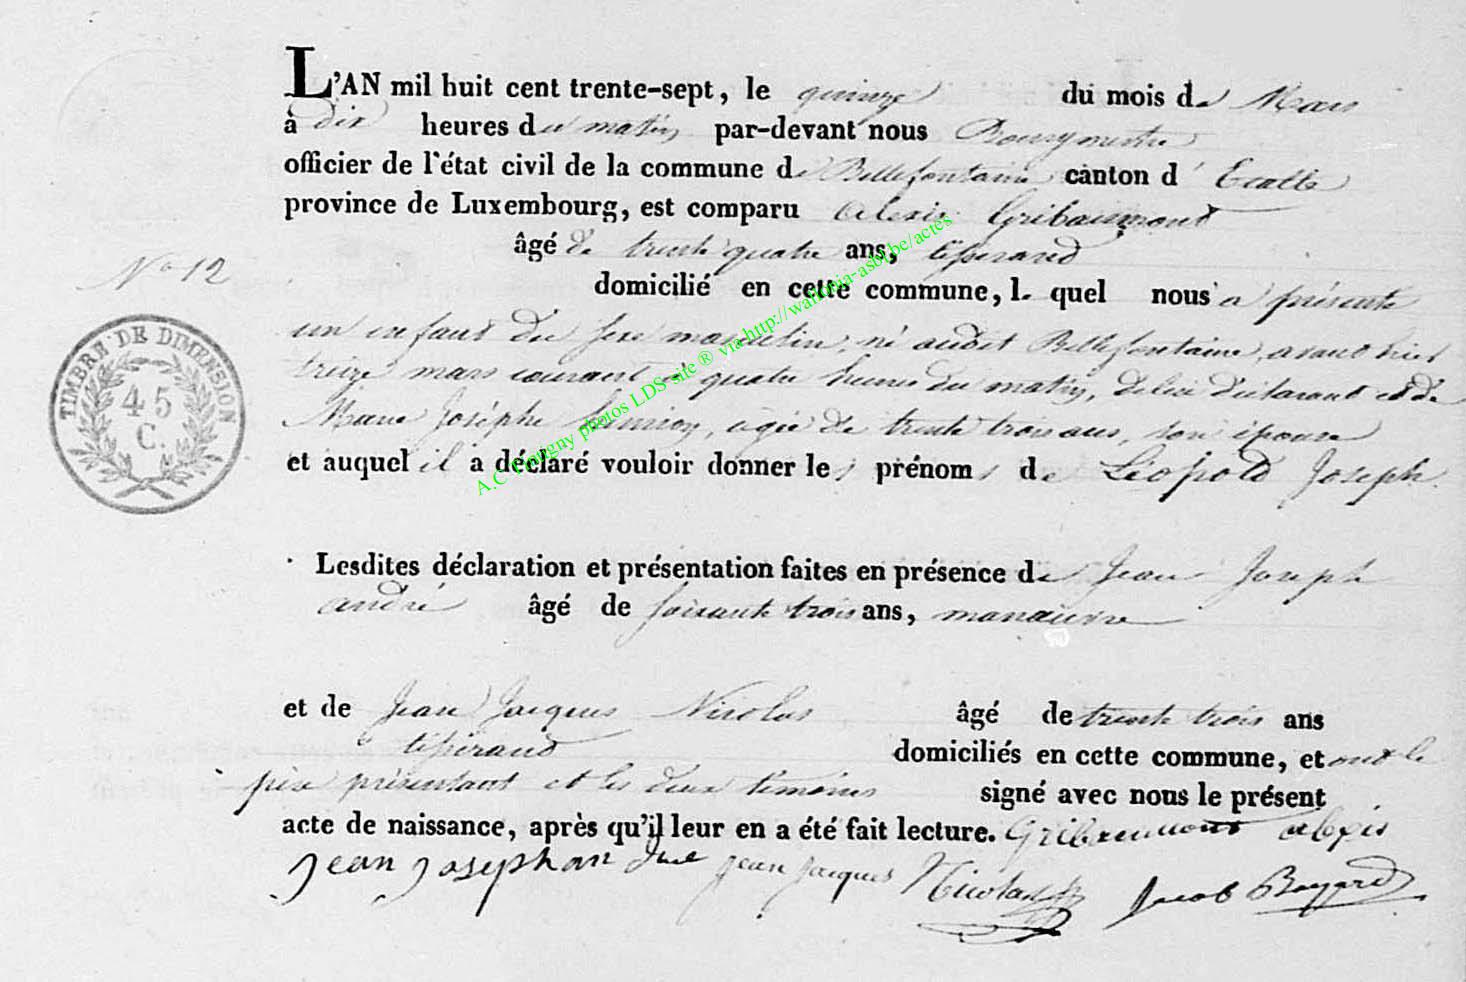 L'AN mil huit cent trente-sept, le quinze du mois de Mars
à dix heures du matin par-devant nous Bourgmestre
officier de l'état civil de la commune de Bellefontaine canton d'Etalle
province de Luxembourg, est comparu Alexis Gribaumont
âgé de trente quatre ans, tisserand
N° 12
domicilié en cette commune, le quel nous a présenté
un enfant du sexe masculin, né audit Bellefontaine, avant hier
treize mars courant à quatre heures du matin, de lui déclarant et de
Marie Joséphe, agée de trente trois ans, son épouse
et auquel il a déclaré vouloir donner les prénoms de Léopold Joseph.
TIMBRE DE DIMENSION
45
C.
Lesdites déclaration et présentation faites en présence de Jean Joseph
andré âgé de soixante trois ans, manœuvre
et de Jean Jacques Nicolas âgé de trente trois ans
tisserand domiciliés en cette commune, et ont le
père présentant et les deux témoins signé avec nous le présent
acte de naissance, après qu'il leur en a été fait lecture. Gribaumont alexis
Jean Joseph andre Jean Jacques Nicolas Jacob Bayard
A.C Tintigny photos LDS site ® via http://wallonia-asbl.be/actes